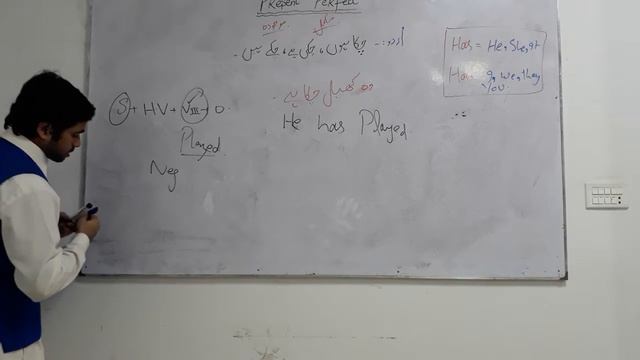 Present Perfect
مکمل موجودہ
اردو:- چکا ہوں، چکی ہے، چکے ہیں۔
Has = He, She, it
Have = I, we, they,
You
وہ کھیل چکا ہے۔
S + HV + VIII + O.
He has Played
Played
Neg